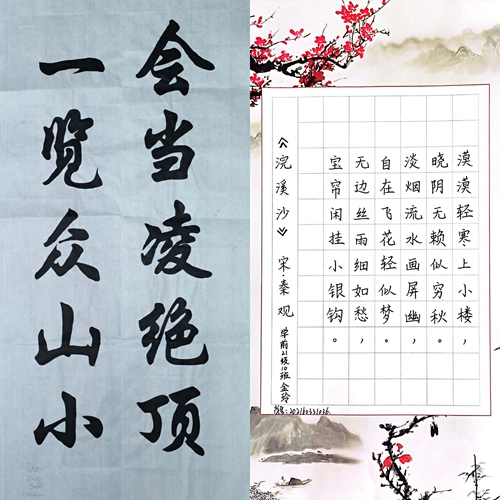 会当凌绝顶
一览众山小
漠漠轻寒上小楼，
晓阴无赖似穷秋。
淡烟流水画屏幽，
自在飞花轻似梦，
无边丝雨细如愁，
宝帘闲挂小银钩。
《浣溪沙》 宋·秦观
学前21级10班金玲